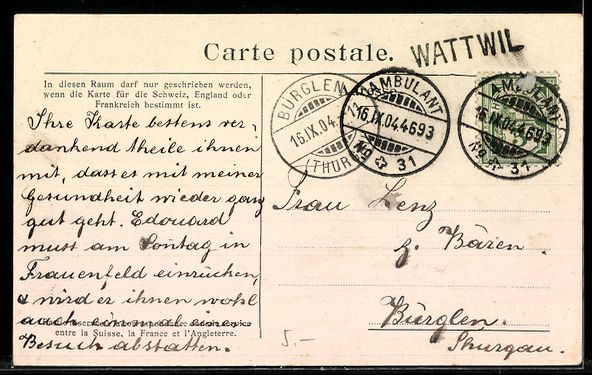 Carte postale.
WATTWIL
In diesen Raum darf nur geschrieben werden,
wenn die Karte für die Schweiz, England oder
Frankreich bestimmt ist.
BÜRGLEN
16.IX.04
(THUR
AMBULANT
16.IX.04.4693
No 31
AMBULANT
16.IX.04.4693
No 31
5
Ihre Karte bestens ver-
dankend theile ihnen
mit, dass es mit meiner
Gesundheit wieder ganz
gut geht. Edouard
muss am Sontag in
Frauenfeld einrücken,
& wird er ihnen wohl
auch einmal einen
entre la Suisse, la France et l'Angleterre.
Besuch abstatten.
Frau Lenz
z. Bären.
Bürglen.
Thurgau.
5.-